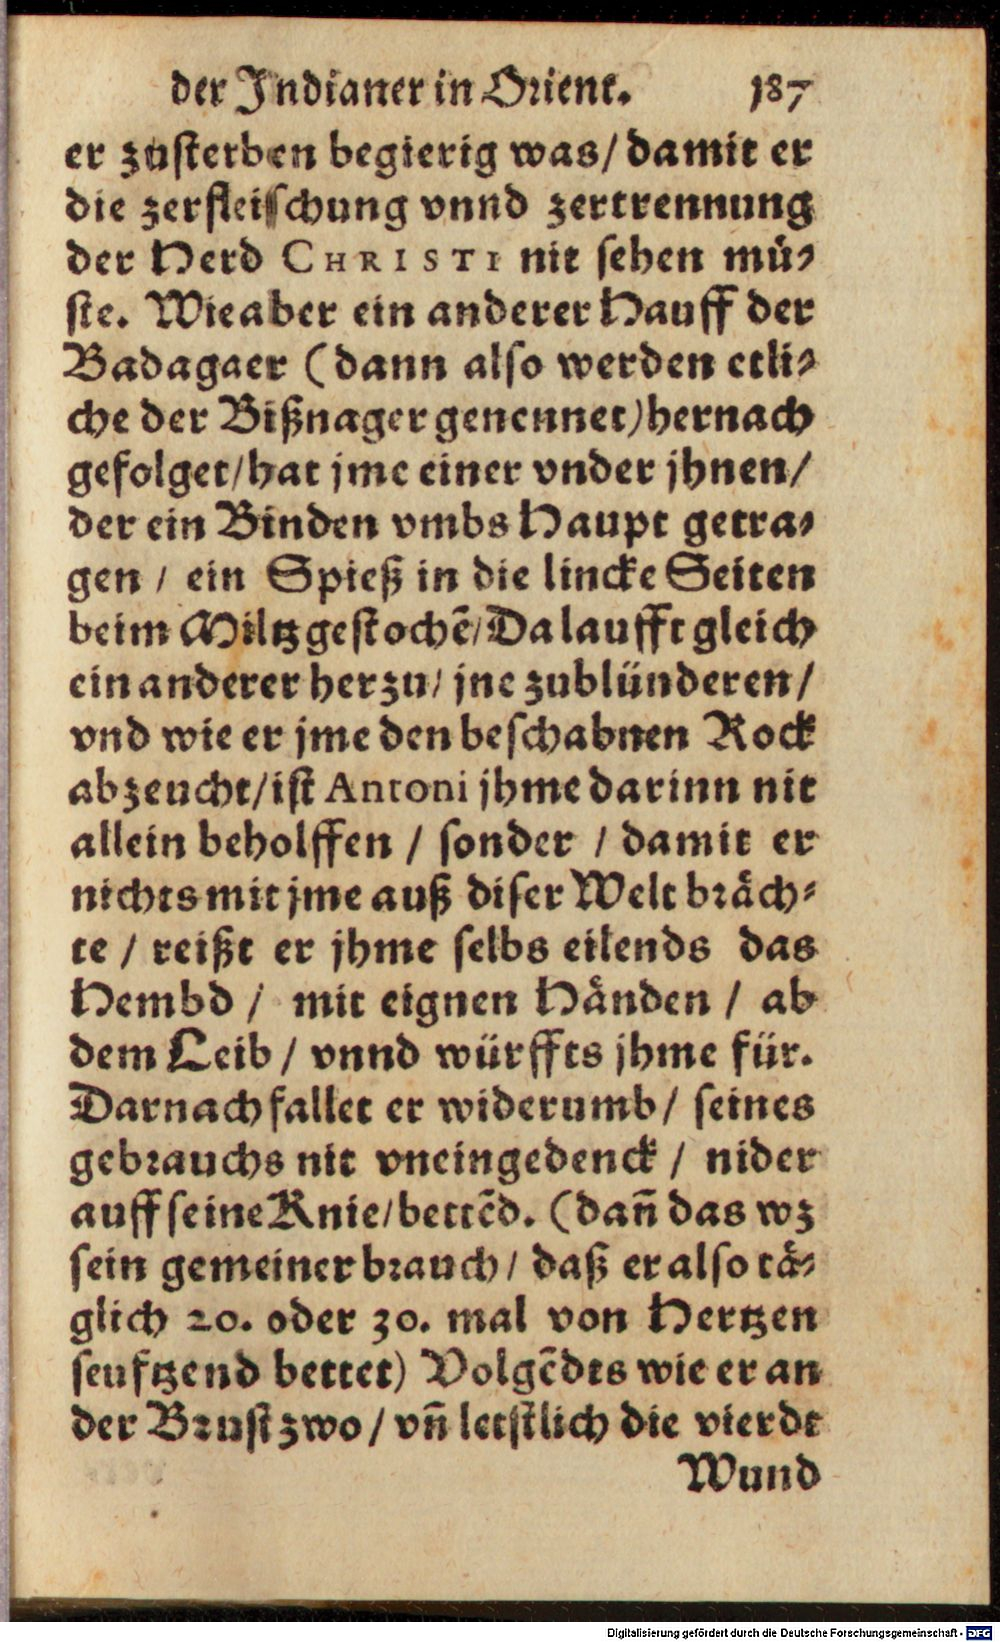 der Indianer in Orient. 187
er zůsterben begierig was/ damit er
die zerfleischung vnnd zertrennung
der Herd CHRISTI nit sehen mů-
ste. Wie aber ein anderer Hauff der
Badagaer (dann also werden etli-
che der Bißnager genennet) hernach
gefolget/ hat jme einer vnder jhnen/
der ein Binden vmbs Haupt getra-
gen / ein Spieß in die lincke Seiten
beim Miltz gestochẽ/ Da laufft gleich
ein anderer herzu/ jne zublünderen/
vnd wie er jme den beschabnen Rock
abzeucht/ ist Antoni jhme darinn nit
allein beholffen / sonder / damit er
nichts mit jme auß diser Welt bräch-
te / reißt er jhme selbs eilends das
Hembd / mit eignen Händen / ab
dem Leib / vnnd würffts jhme für.
Darnach fallet er widerumb / seines
gebrauchs nit vneingedenck / nider
auff seine Knie/ bettẽd. (dañ das wz
sein gemeiner brauch / daß er also tä-
glich 20. oder 30. mal von Hertzen
seufftzend bettet) Volgẽdts wie er an
der Brust zwo / vñ letstlich die vierdt
Wund
Digitalisierung gefördert durch die Deutsche Forschungsgemeinschaft - DFG